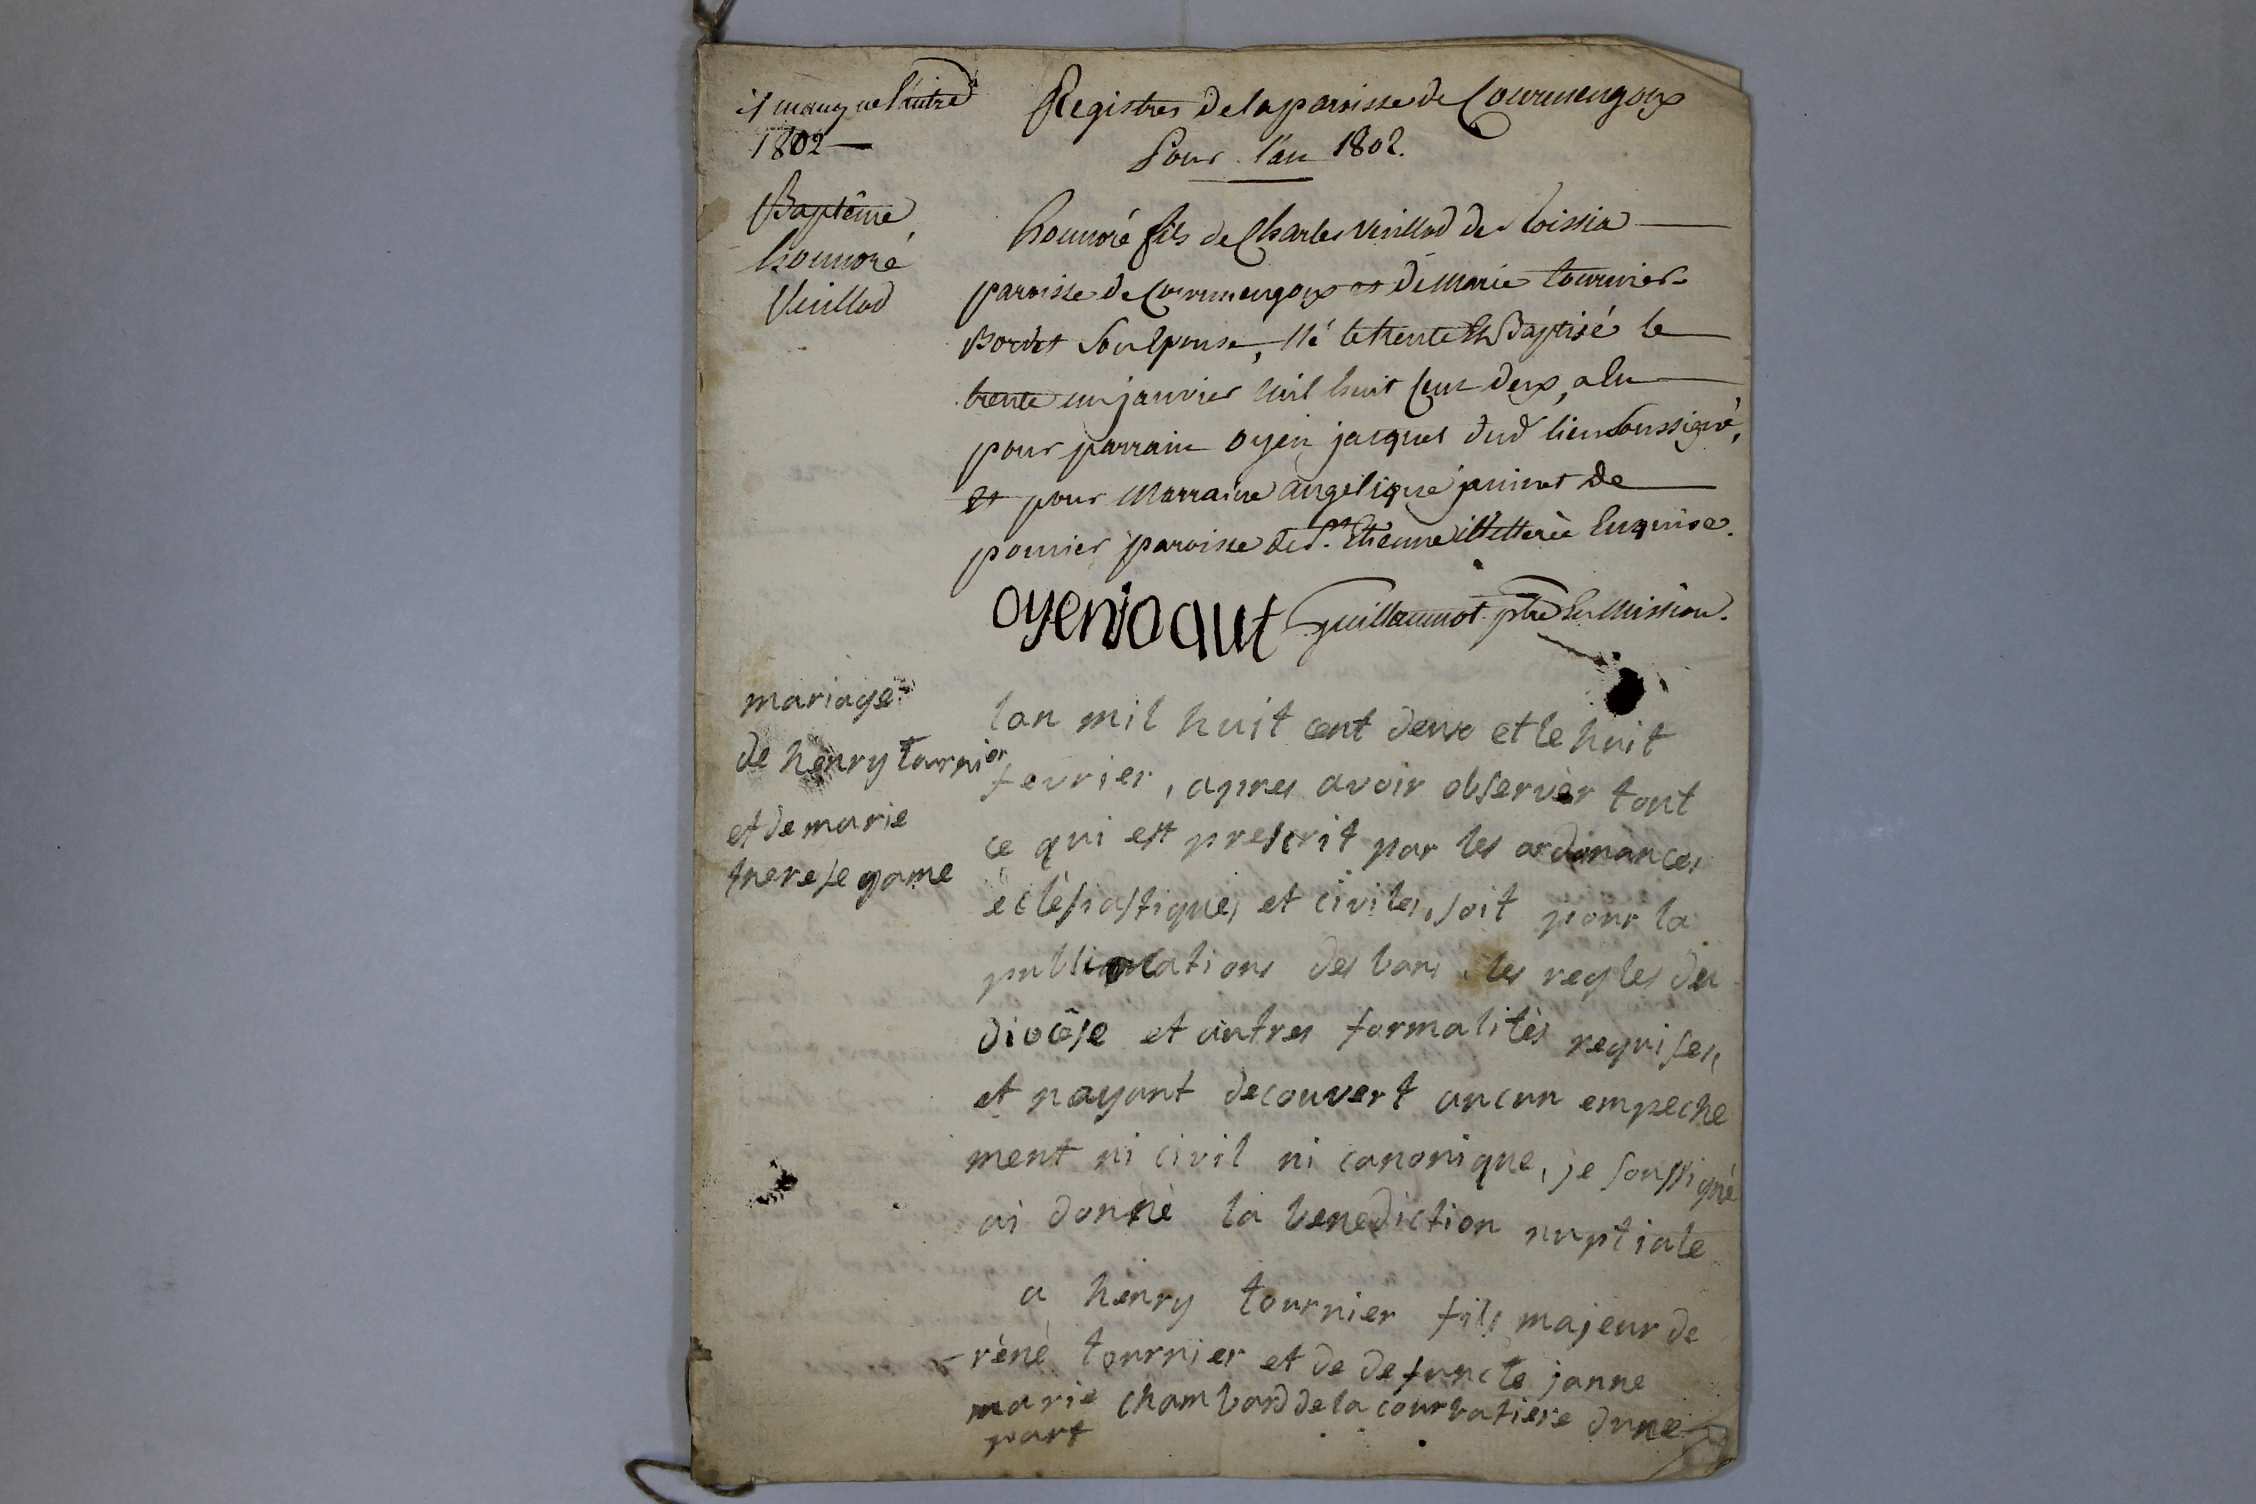 il manque l'autre
1802
Registres de la paroisse de Courmengoux
Pour l'an 1802.
Baptême
honnoré
Veillod
honnoré fils de Charles Veillod de Loissia
paroisse de Courmengoux et de Marie tournier
Bordet Son Epouse, Né le trente Et Baptisé le
trente un janvier mil huit Cent deux, a Eu
pour parrain oyen jacques dud lieu Soussigné,
et pour Marraine angelique janinet de
pouvier paroisse de St. Etienne illetterée Enquise.
oyen jaqut Guillaumot ptre En Mission.
mariage
de henry tournier
et de marie
therese game
lan mil huit cent deux et le huit
fevrier, apres avoir observèr tout
ce qui est prescrit par les ordonànces
èclèsiastiques et civiles, soit pour la
publications des bans, les regles du
diocêse et àutres formalitès requises,
et nayant decouvert aucun empeche
ment ni civil ni canonique, je soussignè
ai donnè la benediction nuptiale
a henry tournier fils majeur de
rènè tournier et de defuncte janne
marie chambard de la courbatiere dune
part